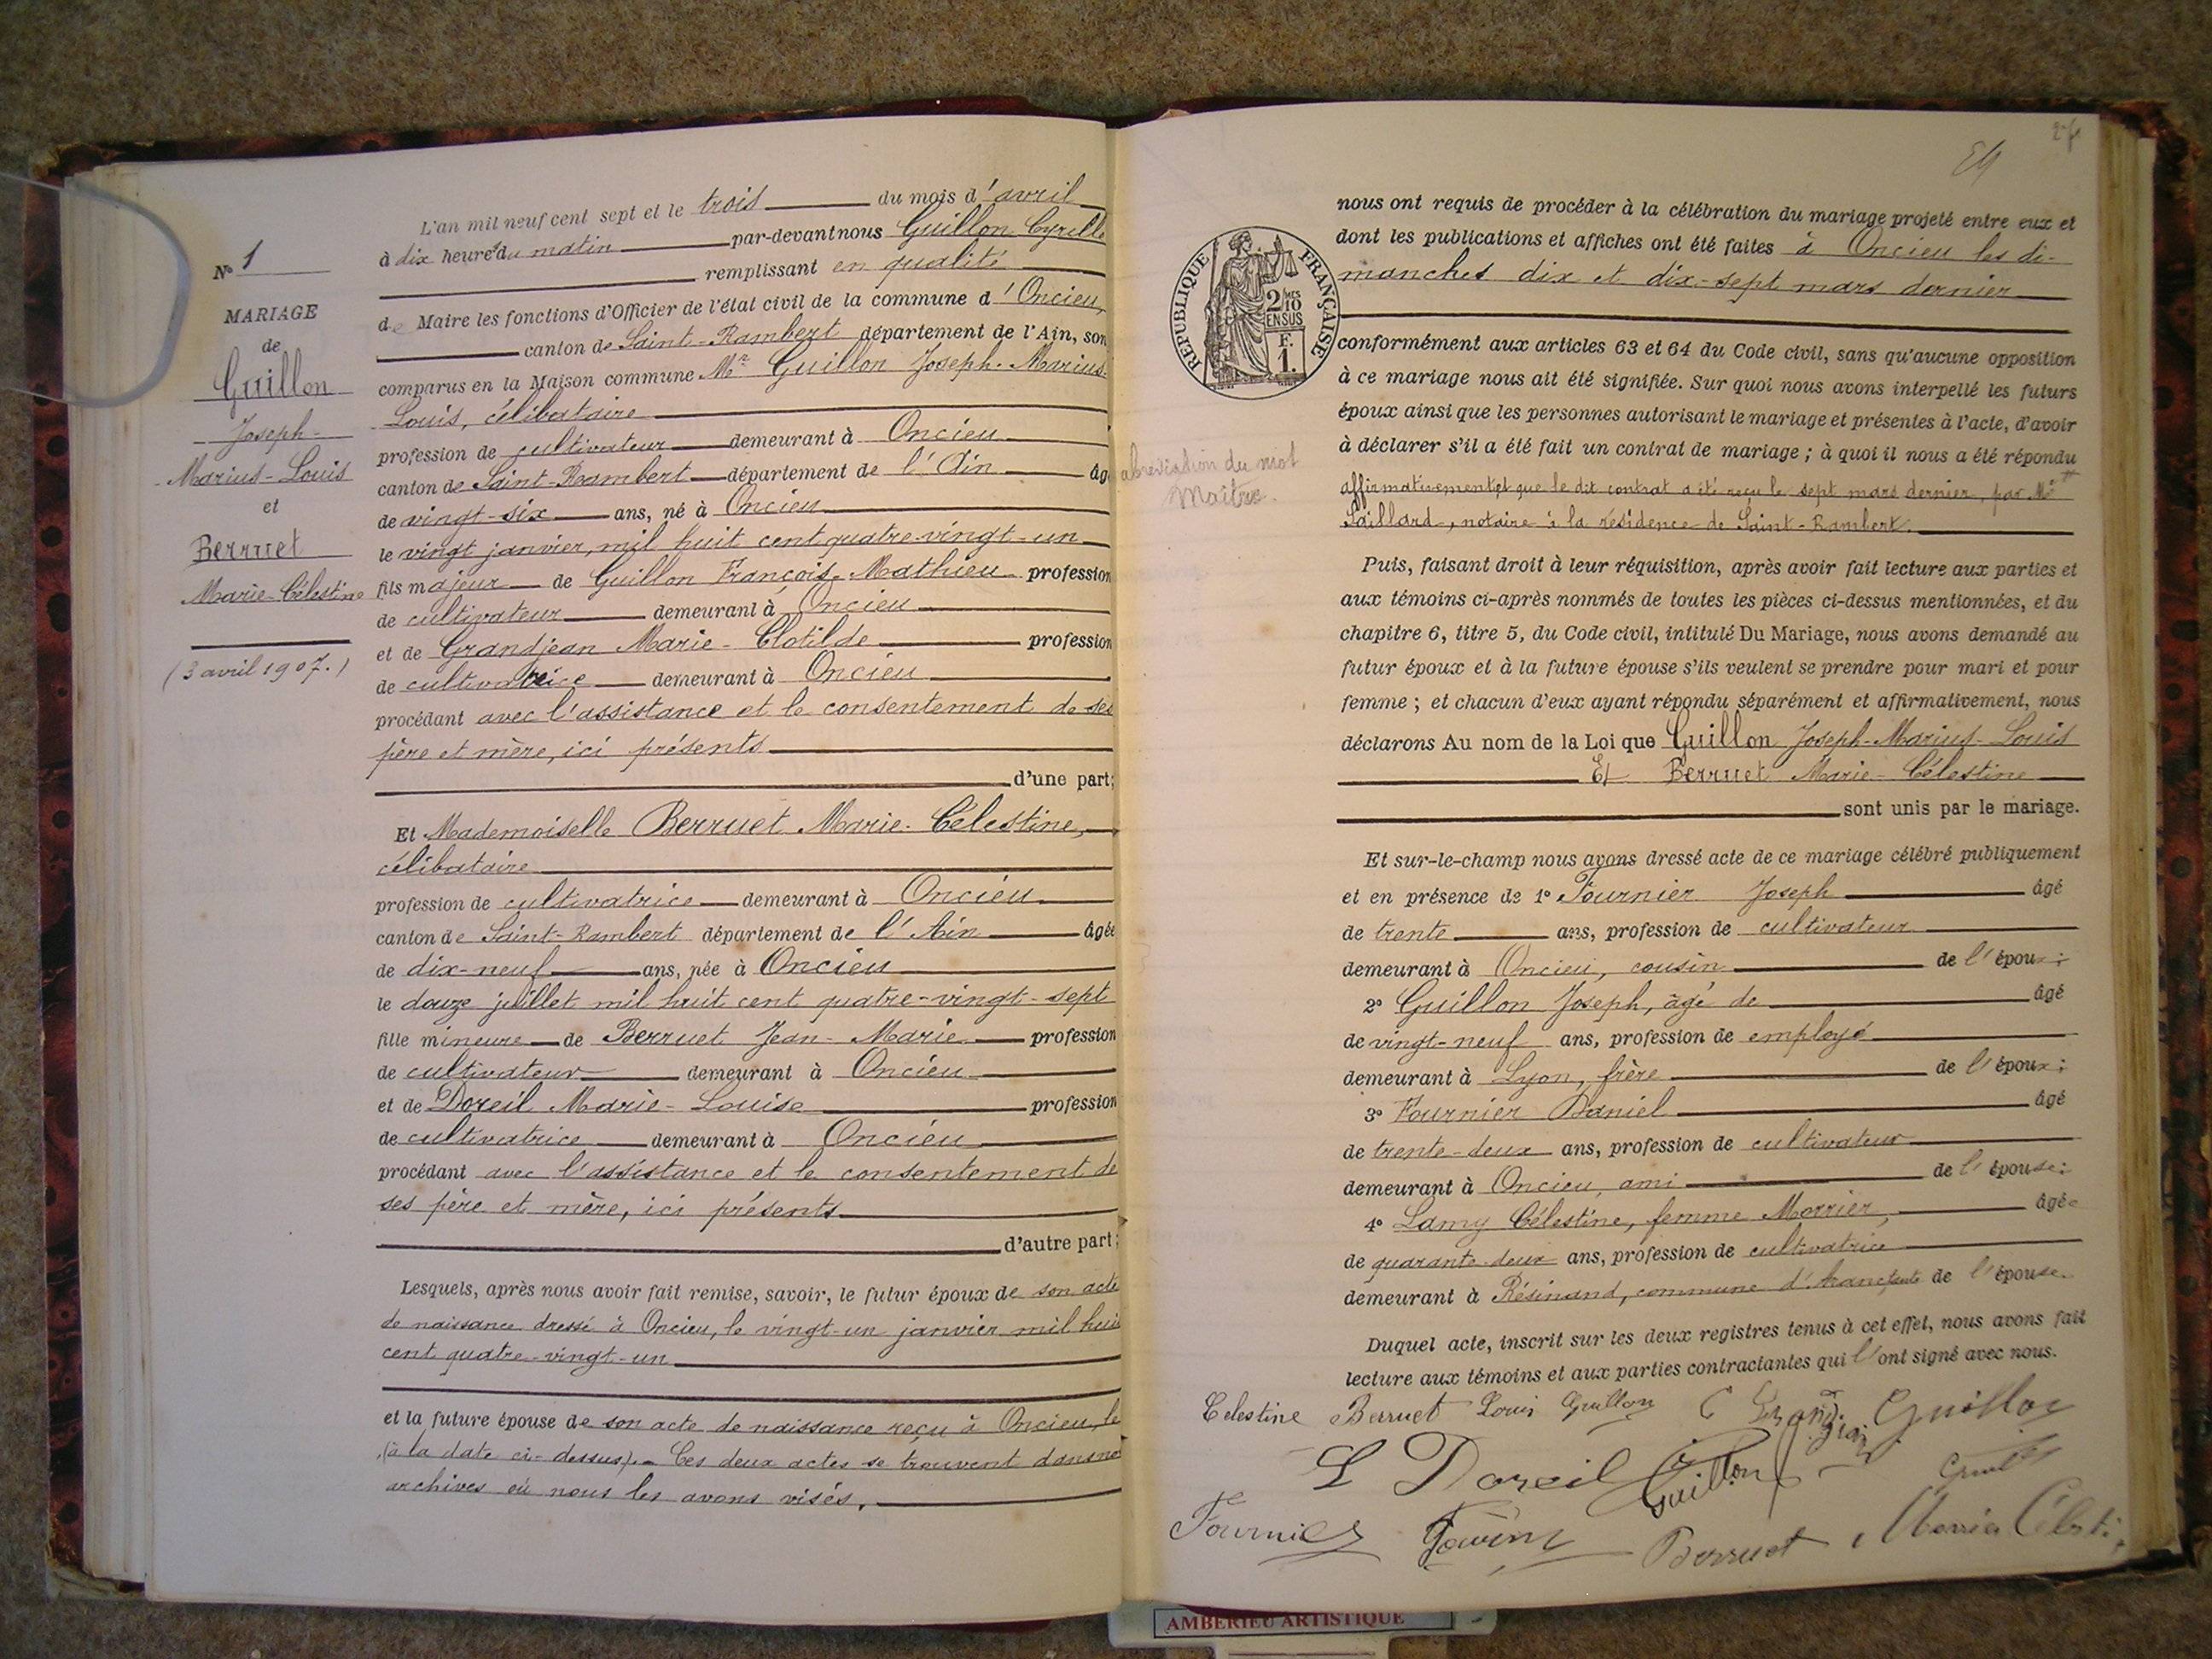 N° 1
MARIAGE
de
Guillon
Joseph-
Marius-Louis
et
Berruet
Marie-Célestine
(3 avril 1907.)
L'an mil neuf cent sept et le trois du mois d'avril
à dix heures du matin par-devant nous Guillon Cyrille
remplissant en qualité
de Maire les fonctions d'Officier de l'état civil de la commune d'Oncieu,
canton de Saint-Rambert département de l'Ain, son
comparus en la Maison commune Mr Guillon Joseph-Marius-
Louis, célibataire
profession de cultivateur demeurant à Oncieu
canton de Saint-Rambert département de l'Ain âg
de vingt-six ans, né à Oncieu
le vingt janvier, mil huit cent quatre-vingt-un
fils majeur de Guillon François-Mathieu profession
de cultivateur demeurant à Oncieu
et de Grandjean Marie-Clotilde profession
de cultivatrice demeurant à Oncieu
procédant avec l'assistance et le consentement de ses
père et mère, ici présents
d'une part;
Et Mademoiselle Berruet Marie-Célestine,
célibataire
profession de cultivatrice demeurant à Oncieu
canton de Saint-Rambert département de l'Ain âgée
de dix-neuf ans, née à Oncieu
le douze juillet mil huit cent quatre-vingt-sept
fille mineure de Berruet Jean-Marie profession
de cultivateur demeurant à Oncieu
et de Doreil Marie-Louise profession
de cultivatrice demeurant à Oncieu
procédant avec l'assistance et le consentement de
ses père et mère, ici présents
d'autre part;
Lesquels, après nous avoir fait remise, savoir, le futur époux de son acte
de naissance dressé à Oncieu, le vingt-un janvier mil huit
cent quatre-vingt-un
et la future épouse de son acte de naissance reçu à Oncieu, le
(à la date ci-dessus). Ces deux actes se trouvent dans no
archives où nous les avons visés.
nous ont requis de procéder à la célébration du mariage projeté entre eux et
dont les publications et affiches ont été faites à Oncieu les di-
manches dix et dix-sept mars dernier
REPUBLIQUE FRANÇAISE
2/10 MES
EN SUS
F.
1.
conformément aux articles 63 et 64 du Code civil, sans qu'aucune opposition
à ce mariage nous ait été signifiée. Sur quoi nous avons interpellé les futurs
époux ainsi que les personnes autorisant le mariage et présentes à l'acte, d'avoir
à déclarer s'il a été fait un contrat de mariage; à quoi il nous a été répondu
abreviation du mot
Maître.
affirmativement et que le dit contrat a été reçu le sept mars dernier, par Me
Saillard, notaire à la résidence de Saint-Rambert.
Puis, faisant droit à leur réquisition, après avoir fait lecture aux parties et
aux témoins ci-après nommés de toutes les pièces ci-dessus mentionnées, et du
chapitre 6, titre 5, du Code civil, intitulé Du Mariage, nous avons demandé au
futur époux et à la future épouse s'ils veulent se prendre pour mari et pour
femme; et chacun d'eux ayant répondu séparément et affirmativement, nous
déclarons Au nom de la Loi que Guillon Joseph-Marius-Louis
Et Berruet Marie-Célestine
sont unis par le mariage.
Et sur-le-champ nous avons dressé acte de ce mariage célébré publiquement
et en présence de 1° Fournier Joseph âgé
de trente ans, profession de cultivateur
demeurant à Oncieu, cousin de l'époux;
2° Guillon Joseph, âgé de âgé
de vingt-neuf ans, profession de employé
demeurant à Lyon, frère de l'époux;
3° Fournier Daniel âgé
de trente-deux ans, profession de cultivateur
demeurant à Oncieu, ami de l'épouse;
4° Lamy Célestine, femme Morrier, âgée
de quarante-deux ans, profession de cultivatrice
demeurant à Résinand, commune d' de l'épouse.
Duquel acte, inscrit sur les deux registres tenus à cet effet, nous avons fait
lecture aux témoins et aux parties contractantes qui l'ont signé avec nous.
Celestine Berruet Louis Guillon C Grandjean Guillon
L Doreil Guillon
Fournier Berruet
AMBERIEU ARTISTIQUE